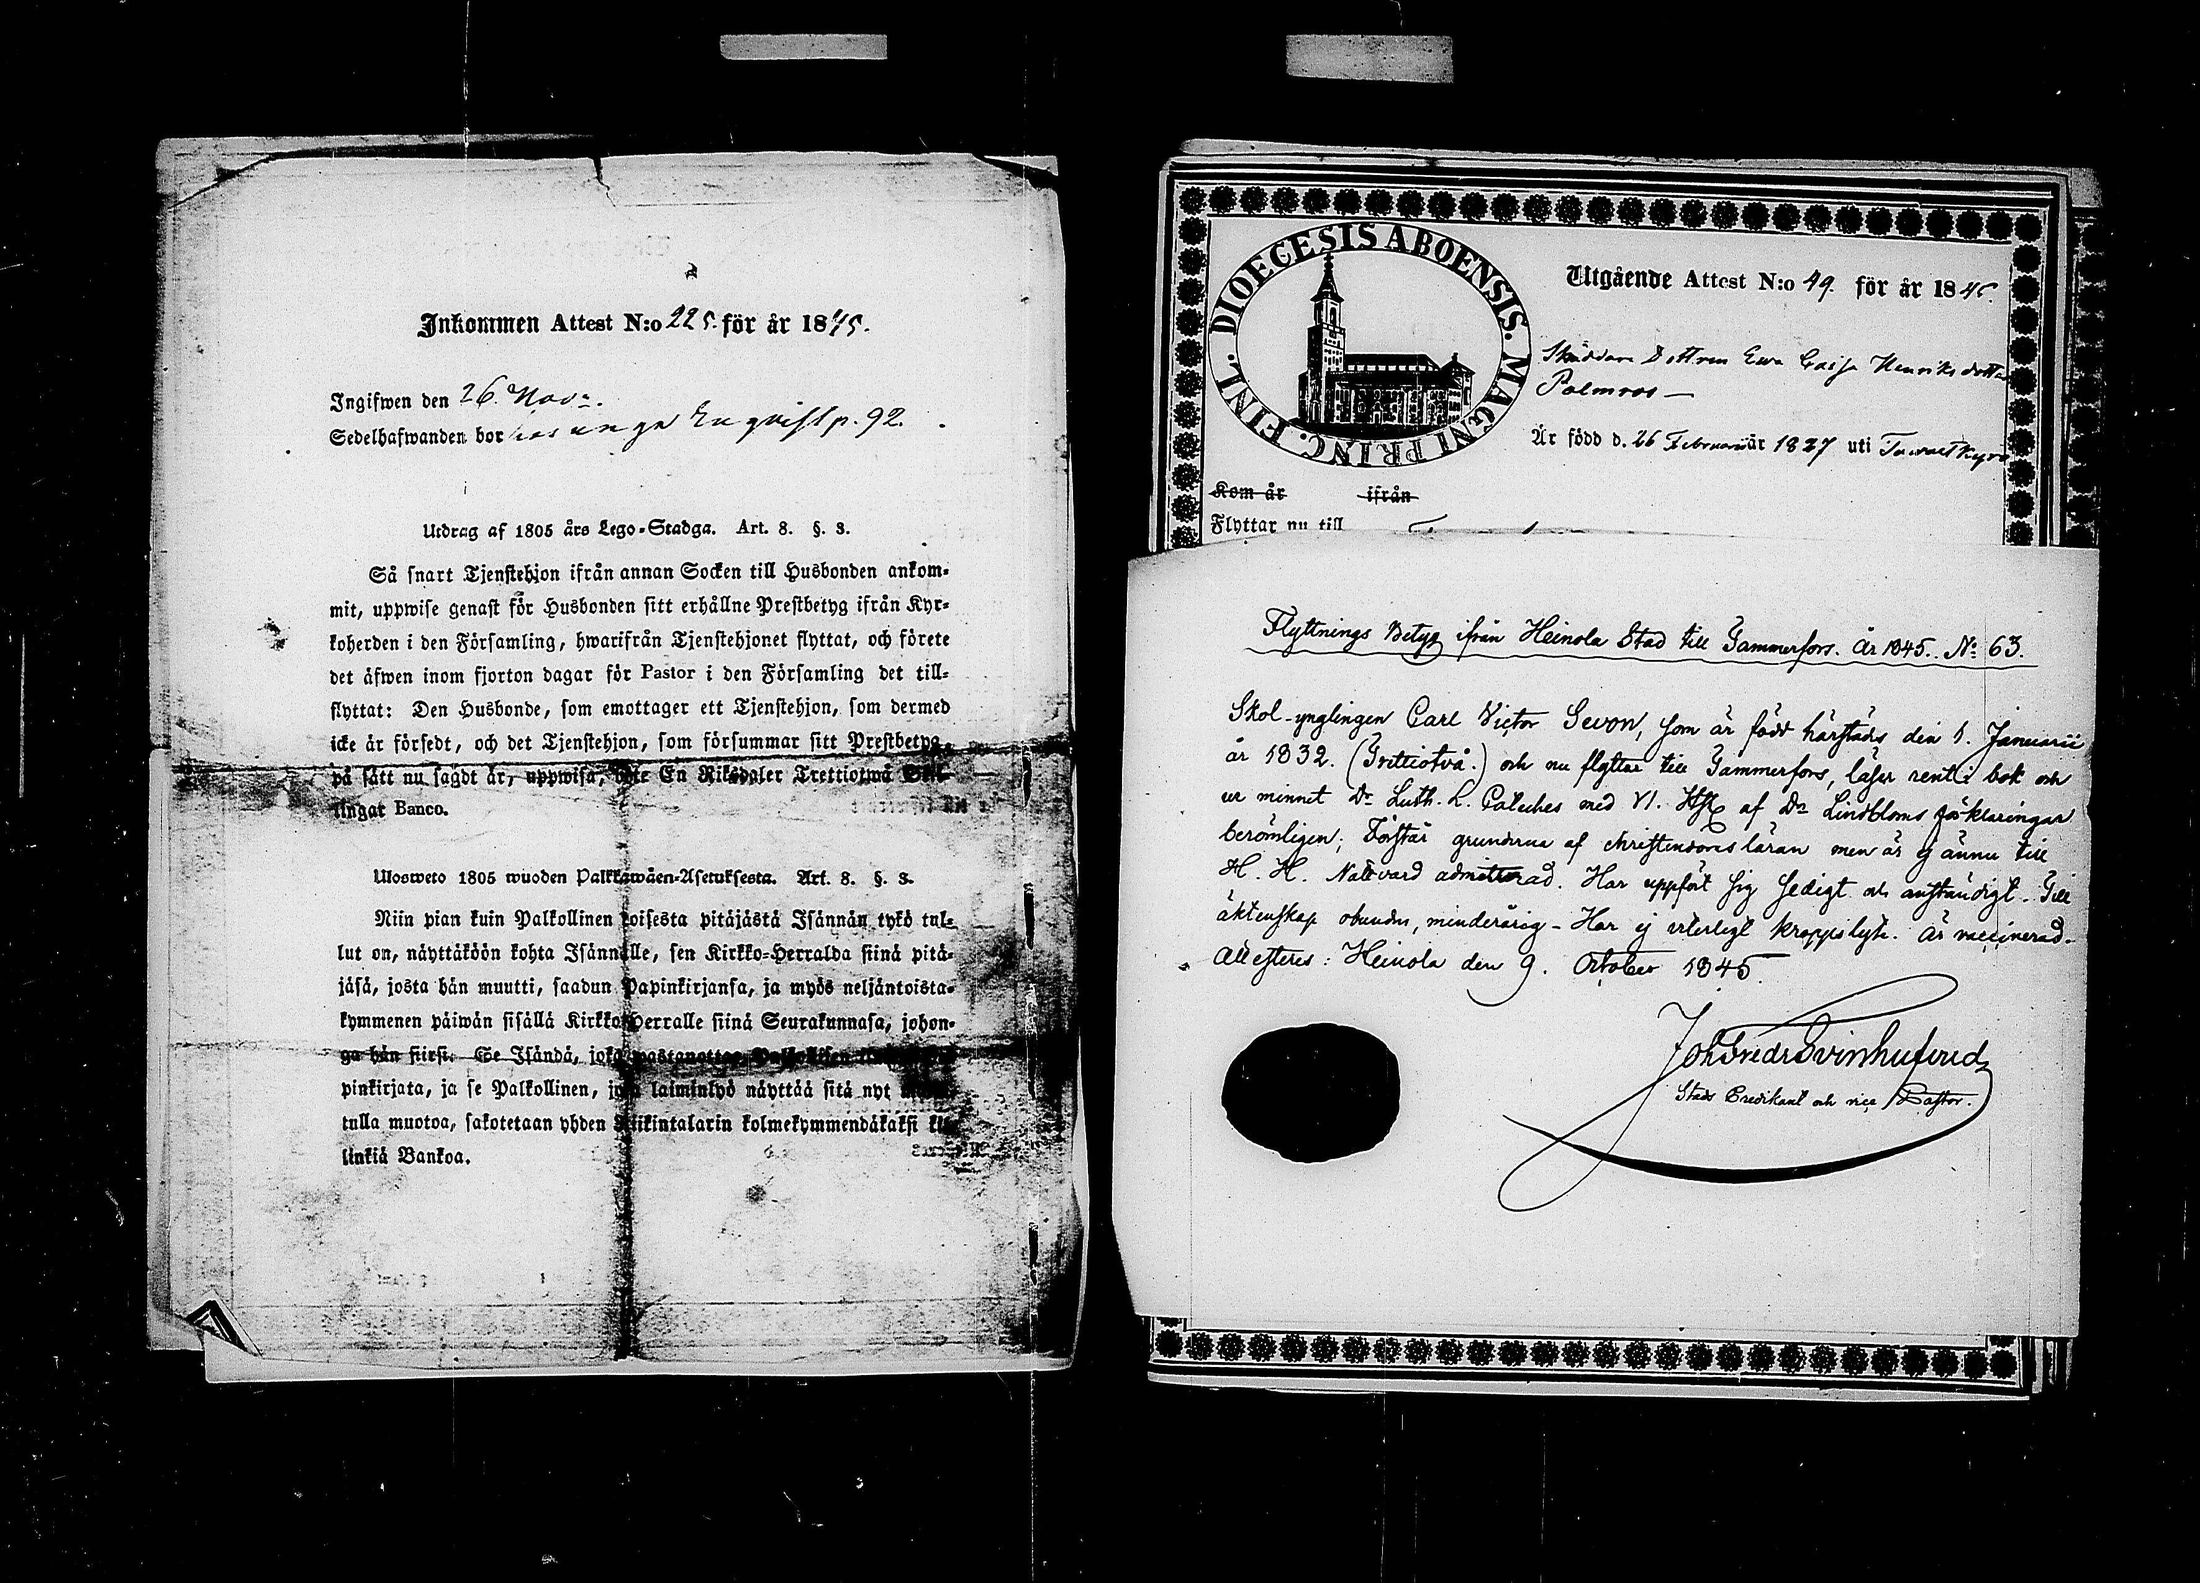 Inkommen Attest N:o 225. för år 1845.
Ingifwen den 26. Nov:.
Sedelhafwanden bor hos unga Enqvist p. 92.
Utdrag af 1805 års Lego-Stadga. Art. 8. §. 3.
Så snart Tjenstehjon ifrån annan Socken till Husbonden ankom-
mit, uppwise genast för Husbonden sitt erhållne Prestbetyg ifrån Kyr-
koherden i den Församling, hwarifrån Tjenstehjonet flyttat, och förete
det äfwen inom fjorton dagar för Pastor i den Församling det till-
flyttat: Den Husbonde, som emottager ett Tjenstehjon, som dermed
icke är försedt, och det Tjenstehjon, som försummar sitt Prestbetyg,
på sätt nu sagdt är, uppwisa, böte En Riksdaler Trettiotwå Skil-
lingar Banco.
Ulosweto 1805 wuoden Palkkawäen-Asetuksesta. Art. 8. §. 3.
Niin pian kuin Palkollinen toisesta pitäjästä Isännän tykö tul-
lut on, näyttäköön kohta Isännälle, sen Kirkko-Herralda siinä pitä-
jäsä, josta hän muutti, saadun Papinkirjansa, ja myös neljäntoista-
kymmenen päiwän sisällä Kirkko-Herralle siinä Seurakunnasa, johon-
ga hän siirsi. Se Isändä, joka wastanottaa Palkollisen
pinkirjata, ja se Palkollinen, joka laiminlyö näyttää sitä nyt
tulla muotoa, sakotetaan yhden Riikintalarin kolmekymmendäkaksi kil-
linkiä Bankoa.
DIOECESIS ABOENSIS. MAGNI PRINC. FINL.
Utgående Attest N:o 49. för år 1845.
Skräddare Dottren Ewa Caisa Henriksdotter
Palmros —
Är född d. 26 Februarii år 1827 uti Tawastkyro
Kom år ifrån
Flyttar nu till
Flyttnings Betyg ifrån Heinola Stad till Tammerfors. År 1845. N: 63.
Skol-ynglingen Carl Victor Sevon, som är född härstädes den 1. Januarii
år 1832. (Trettiotvå.) och nu flyttar till Tammerfors, läser rent i bok och
ur minnet Dr Luth. L. Cateches med Vl. Hfl af Dr Lindbloms förklaringar
berömligen; Förstår grunderna af christendoms läran men är ej ännu till
H. H. Nattvard admitterad. Har uppfört sig sedigt och anständigt. Till
äktenskap obunden, minderårig - Har ej veterligt kroppslyte. Är vaccinerad.
Attesteres: Heinola den 9. October 1845.
Joh Fredr Svinhufvud
Stads Predikant och vice Pastor.